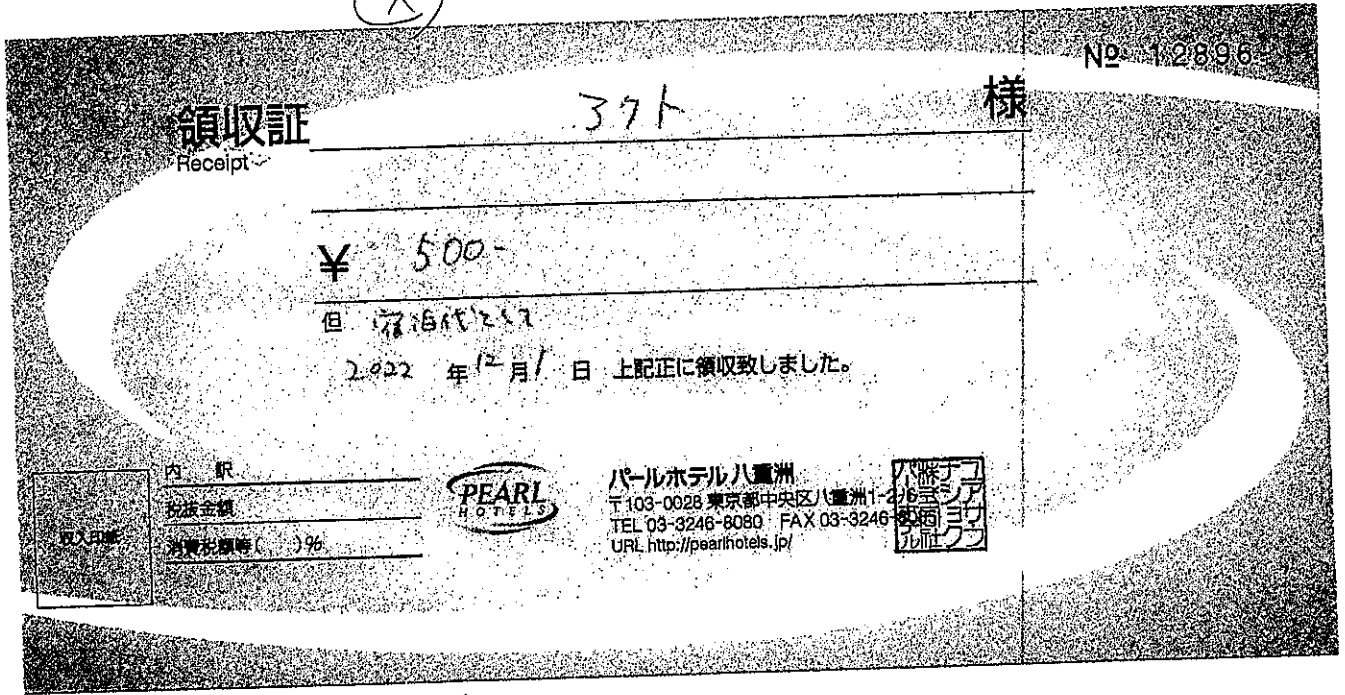 № 12896
領収証 ヨクト 様
Receipt
¥ 500-
但 宿泊代として
2022 年 12 月 1 日 上記正に領収致しました。
収入印紙
内 訳
税抜金額
消費税額等( )%
PEARL
HOTELS
パールホテル八重洲
〒103-0028 東京都中央区八重洲1-2
TEL 03-3246-8080 FAX 03-3246-
URL http://pearlhotels.jp/